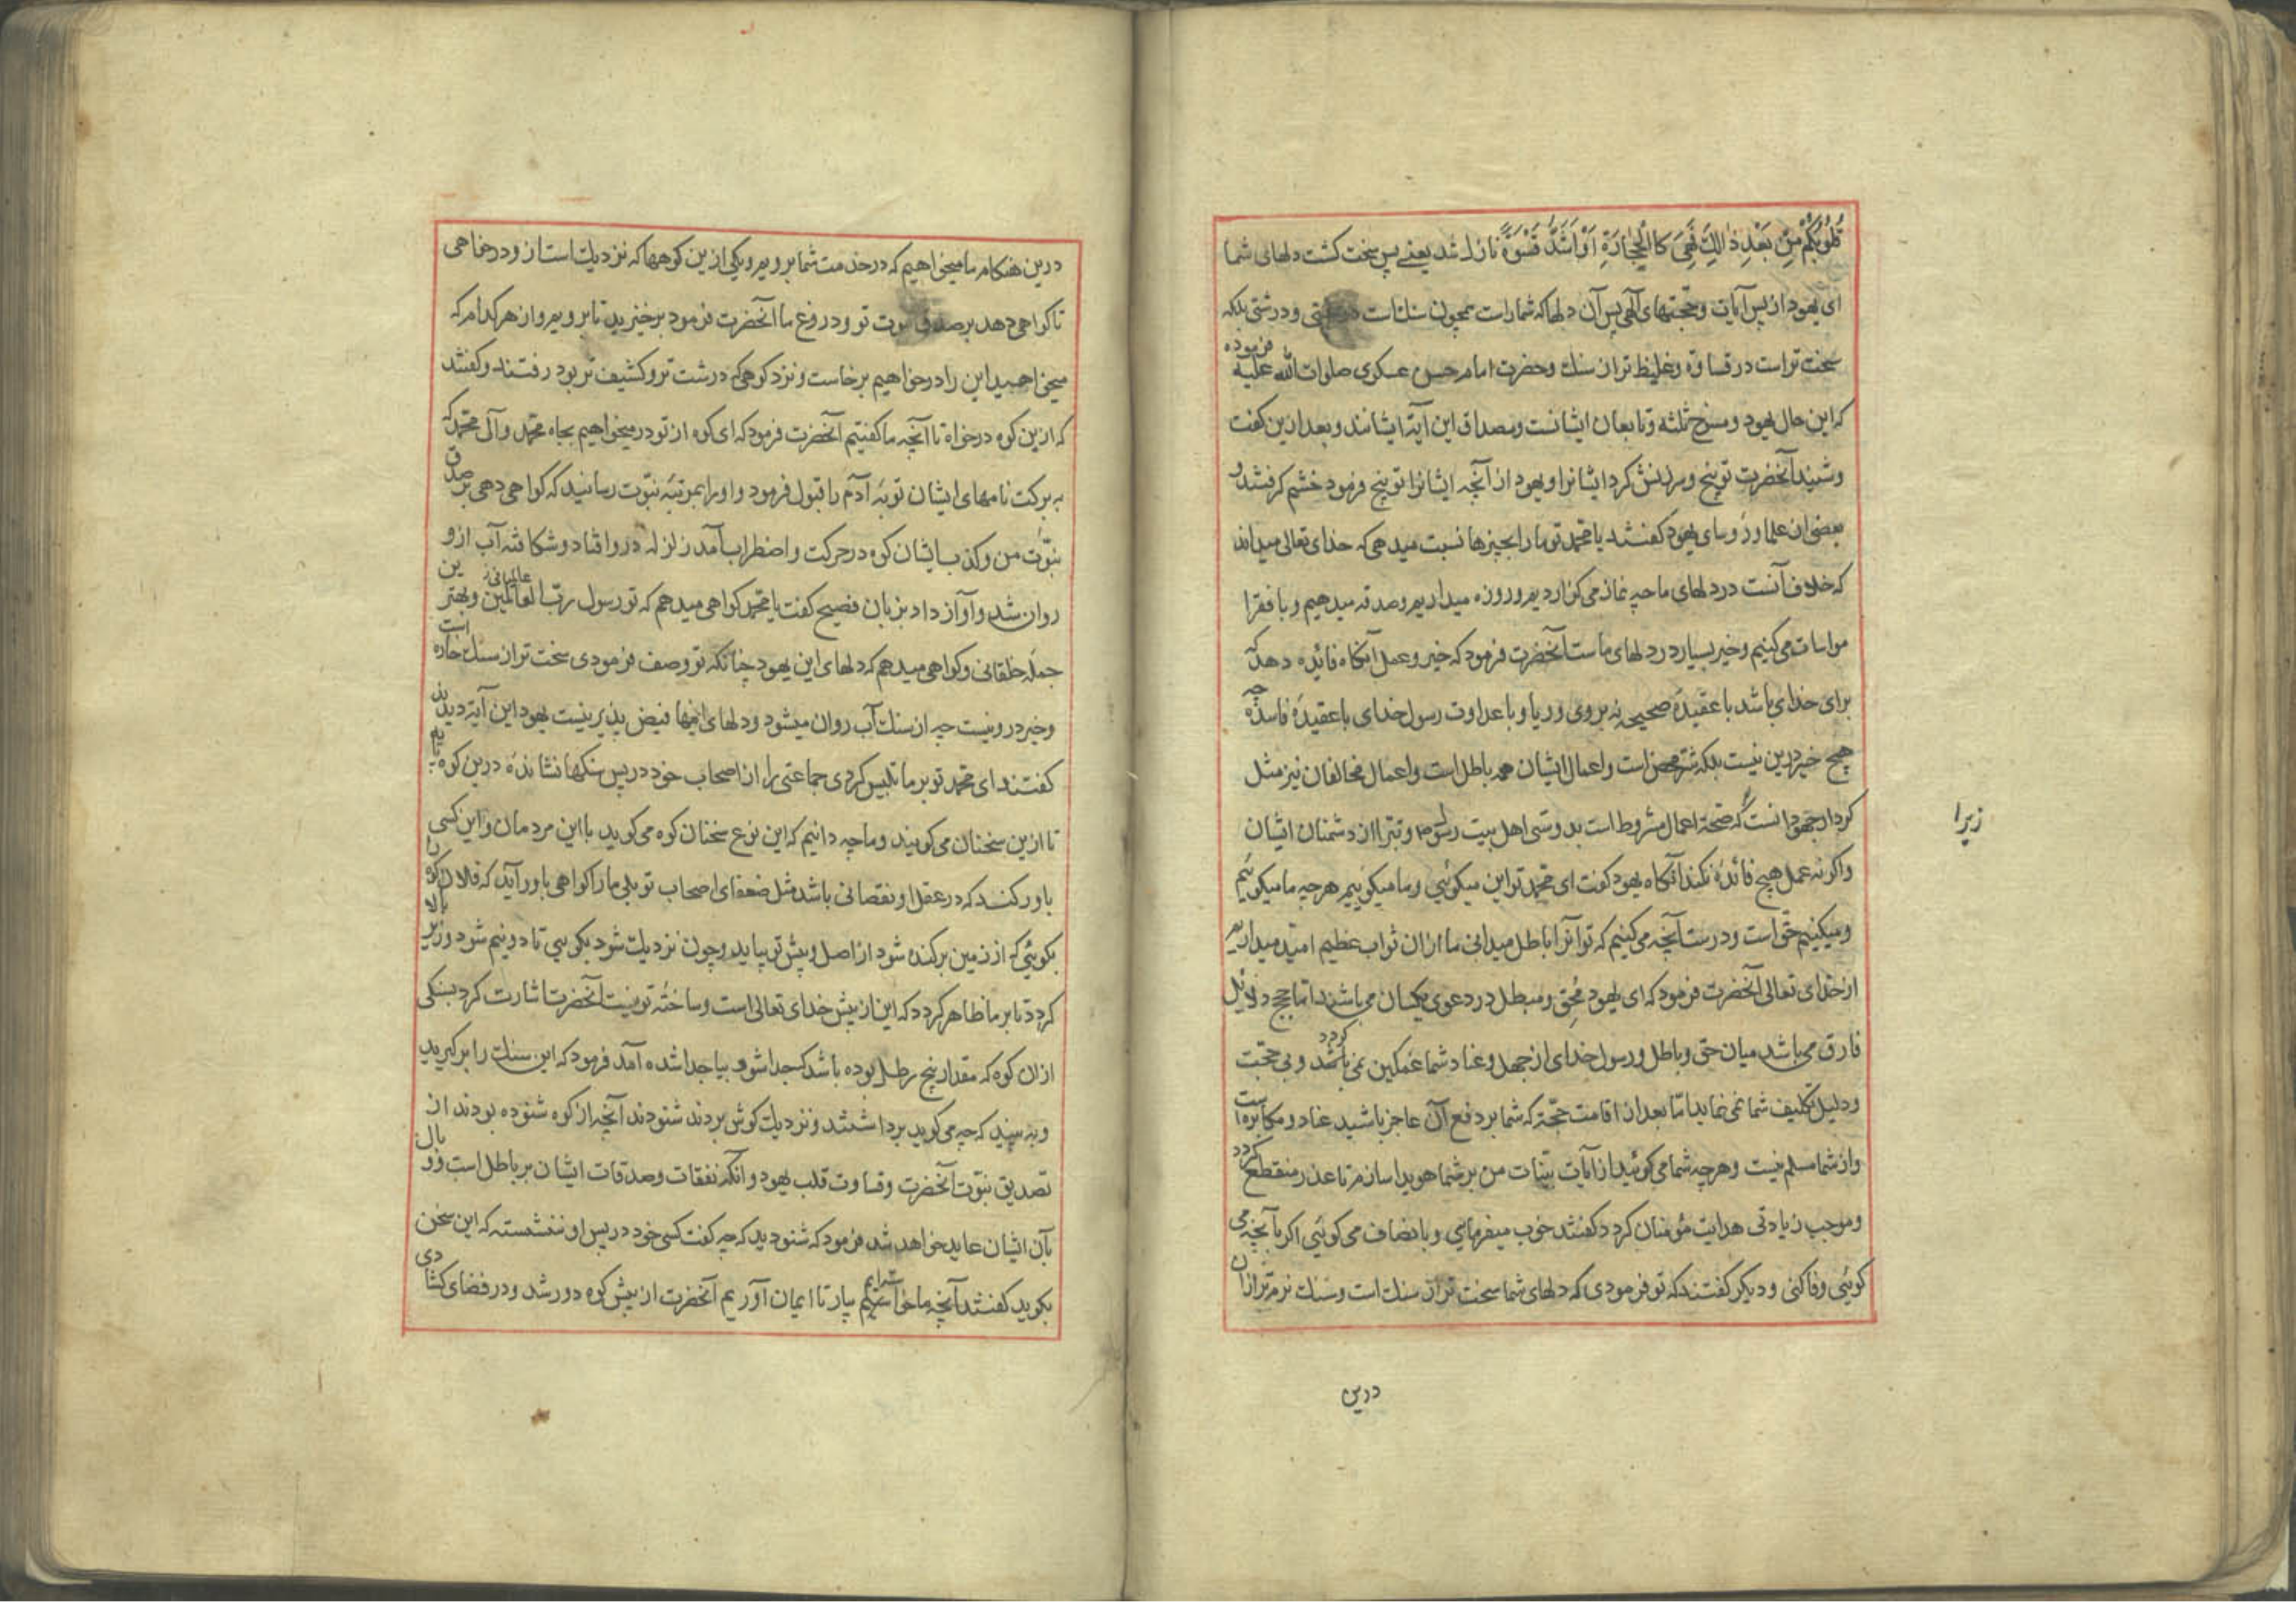 قُلُوبُكُمْ مِنْ بَعْدِ ذٰلِكَ فَهِيَ كَالْحِجَارَةِ اَوْ اَشَدُّ قَسْوَةً نازل شد یعنے پس سخت کشت دلهای شما
ای یهود از پس آیات و حجتهای آلهی پس آن دلها که شماراست همچون سنك است در سختی و درشتی بلکه
سخت تر است در قساوة و غلیظ تر ان سنك و حضرت امام حسن عسکری صلوات الله علیه فرموده
که این حال یهود و مسخ ثلثه و تابعان ایشانست و مصداق این آیة ایشانند و بعد ازین کفت
وشنید آنحضرت توبیخ و سرزنش کرد ایشانرا و یهود از آنچه ایشانرا توبیخ فرمود خشم کرفتند و
بعضی ان علما و رؤسای یهود کفتند یا محمد تو ما را بچیزها نسبت میدهی که خدای تعالی میداند
که خلاف آنست در دلهای ما چه نماز می کزاردیم و روزه میداریم و صدقه میدهیم و با فقرا
مواسات می کنیم و خیر بسیار در دلهای ماست آنحضرت فرمود که خیر و عمل آنکاه فائده دهد که
برای خدای باشد با عقیدهٔ صحیحه نه بروی و ریا و با عداوت رسول خدای با عقیدهٔ فاسده چه
هیچ خیر درین نیست بلکه شر محض است و اعمال ایشان همه باطل است و اعمال مخالفان نیز مثل
کردار جهودانست که صحة اعمال مشروط است بدوستی اهل بیت رسول و تبرا از دشمنان ایشان
زیرا
واکرنه عمل هیچ فائدهٔ نکند آنکاه یهود کفت ای محمد تو این میکوئی و ما میکوییم هرچه ما میکوئیم
و میکنیم حق است و درست آنچه می کنیم که تو آنرا باطل میدانی ما ازان ثواب عظیم امید میداریم
از خدای تعالی آنحضرت فرمود که ای یهود محق و مبطل در دعوی یکسان می باشند اما حجج و دلائل
فارق می باشد میان حق و باطل و رسول خدای از جهل و عناد شما غمکین نمی باشد کردد و بی حجت
و دلیل تکلیف شما نمی نماید اما بعد ان اقامت حجة که شما بر دفع آن عاجز باشید عناد و مکابره است
واز شما مسلم نیست و هرچه شما می کوئید از آیات بینات من بر شما هویدا سازم تا عذر منقطع کردد
و موجب زیادتی هدایت مؤمنان کردد کفتند خوب میفرمایی و با نصاف می کوئی اکر بآنچه می
کوئی وفا کنی و دیکر کفتند که تو فرمودی که دلهای شما سخت تر از سنك است و سنك نرم تر ازان
درین
درین هنکام ما میخواهیم که در خدمت شما برویم و یکی ازین کوهها که نزدیك است ازو درخواهی
تا کواهی دهد بر صدق نبوت تو و دروغ ما آنحضرت فرمود برخیزید تا برویم و از هر کدام که
میخواهید این را درخواهیم برخاست و نزد کوهی که درشت تر و کشیف تر بود رفتند و کفتند
که ازین کوه درخواه تا آنچه ما کفتیم آنحضرت فرمود که ای کوه از تو درمیخواهیم بجاه محمد و آل محمد که
به برکت نامهای ایشان توبهٔ آدم را قبول فرمود و او را بمرتبهٔ نبوت رسانید که کواهی دهی بر صدق
نبوت من و کذب ایشان کوه در حرکت و اضطراب آمد زلزله درو افتاد و شکافته آب ازو
روان شد و آواز داد بزبان فصیح کفت یا محمد کواهی میدهم که تو رسول رب العالمین و بهترین
جملهٔ خلقانی و کواهی میدهم که دلهای این یهود چنانکه تو وصف فرمودی سخت تر از سنك خاره است
و خیر درو نیست چه از سنك آب روان میشود و دلهای اینها فیض پذیر نیست یهود این آیة دیدند
کفتند ای محمد تو بر ما تلبیس کردی جماعتی را ان اصحاب خود در پس سنکها نشاندهٔ درین کوه
تا ازین سخنان می کویند و ما چه دانیم که این نوع سخنان کوه می کوید با این مردمان و این کسی
باور کند که در عقل او نقصانی باشد مثل ضعفای اصحاب تو بلی ما را کواهی باور آید که فلان کوه را
بکوئی که از زمین برکنده شود از اصل و پیش تو بیاید و چون نزدیك شود بکویی تا دو نیم شود و زیر بالا
کردد تا بر ما ظاهر کردد که این از پیش خدای تعالی است و ساختهٔ تو نیست آنحضرت اشارت کرد بسنکی
ازان کوه که مقدار پنج رطل بوده باشد که جدا شو و بیا جدا شده آمد فرمود که این سنك را برکیرید
و به بینید که چه می کوید برداشتند و نزدیك کوش بردند شنودند آنچه از کوه شنوده بودند از
تصدیق نبوت آنحضرت و قساوت قلب یهود و آنکه نفقات و صدقات ایشان بر باطل است و وبال
بآن ایشان عاید خواهد شد فرمود که شنودید که چه کفت کسی خود در پس او ننشسته که این سخن
بکوید کفتند آنچه ما خواستیم بیار تا ایمان آوریم آنحضرت از پیش کوه دور شد و در فضای کشادی